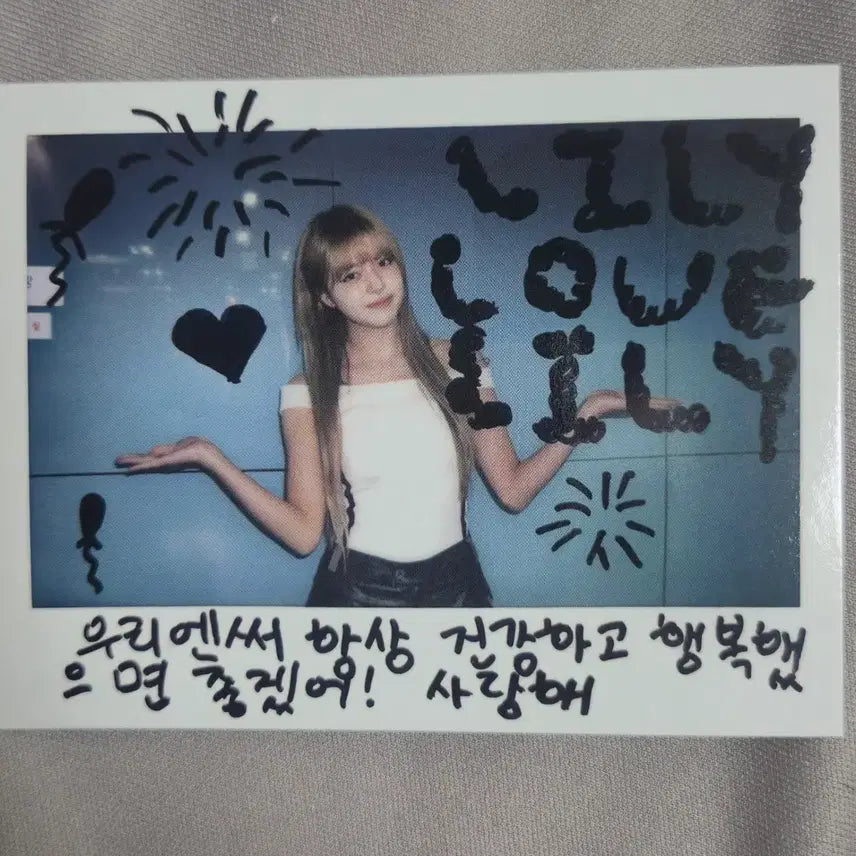 LILY
LOVE
LILY
우리엔써 항상 건강하고 행복했
으면 좋겠어! 사랑해